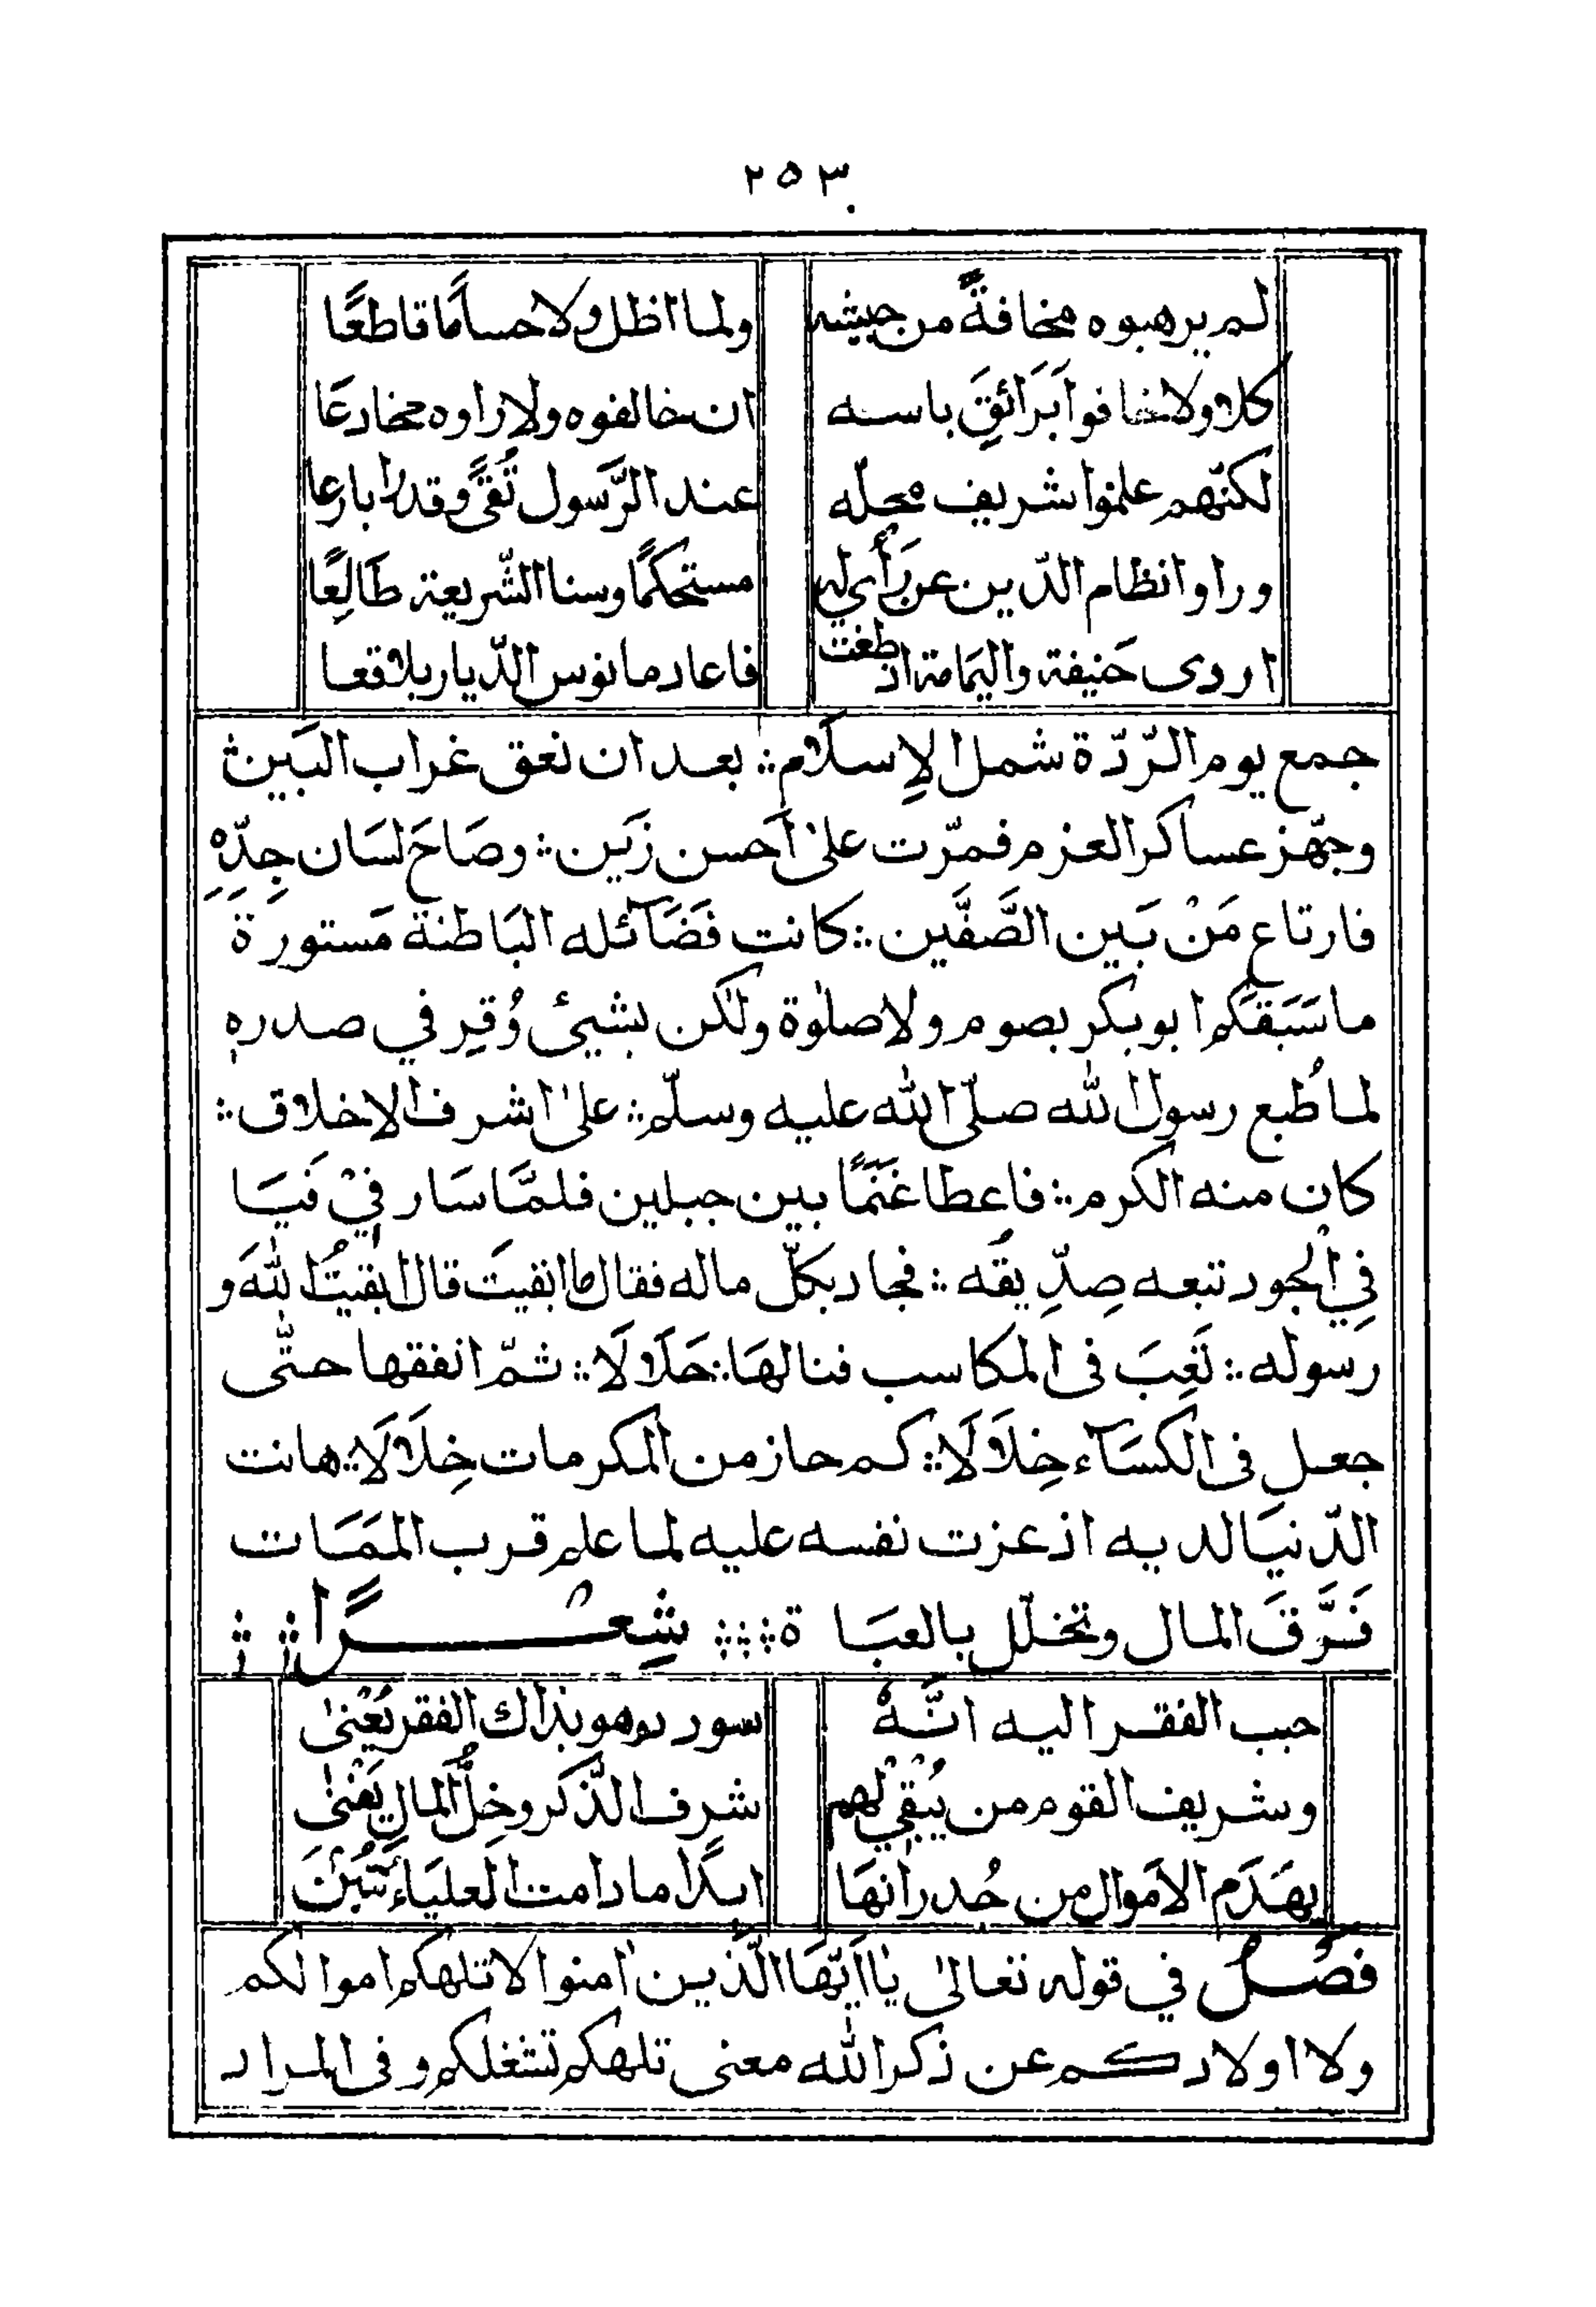 ٢٥٣
لم يرهبوه مخافةً من جيشه ولما اظل ولا حسامًا قاطعًا
كلا ولا خافوا بَرَائقِ باسه ان خالفوه ولا راوه مخادعًا
لكنّهم علموا شريف محلّه عند الرَّسول تُقىً وقدرا بارعا
وراوا نظام الدّين عن رَأي له مستحكمًا وسنا الشّريعة طَالِعًا
اردى حَنيفة واليَمامة اذ طغت فاعاد مانوس الدّيار بلاقعا
جمع يوم الرّدّة شمل الاِسلَام ∴ بعد ان نعق غراب البَين ∴
وجهّز عساكر العزم فمرّت علىٰ اَحسن زَين ∴ وصَاحَ لسَان جِدّهِ
فارتاع مَنْ بَين الصَّفَّين ∴ كانت فَضَآئله البَاطنة مَستورة
ما سَبَقَكم ابو بكر بصوم ولا صلوٰة ولٰكن بشيئ وُقِر في صدره
لما طُبع رسول الله صلّى الله عليه وسلّم ∴ علىٰ اشرف الاخلاق ∴
كان منه الكرم ∴ فاعطا غَنَمًا بين جبلين فلمَّا سَار فِيْ فَيَا
فِي الجود تبعه صِدِّيقُه ∴ فجاد بكلّ ماله فقال ما ابقيتَ قال ابقيتُ اللهَ و
رسوله ∴ تَعِبَ فى المكاسب فنالهَا ∴ حَلَالًا ∴ ثمّ انفقها حتّٰى
جعل فى الكسَآء خِلَالًا ∴ كم حاز من المكرمات خِلَالًا ∴ هانت
الدّنيَا لديه اذ عزت نفسه عليه لما علم قرب المَمَات
فَرَّقَ المال وتخلّل بالعبَاة ∴ شِعْرًا ∴
حبب الفقر اليه انَّهُ سودد وهو بذاك الفقر يَغْنىٰ
وشريف القوم من يُبْقِيْ لهم شرف الذّكر وخِلُّ المالِ يَفْنىٰ
يهَدَم الاَموال من جُدرانهَا ابدًا ما دامت العليَاء تُبْنَ
فصْلٌ في قوله تعالىٰ يٰا اَيّهَا الّذين اٰمنوا لا تلهكم اموالكم
ولا اولادكم عن ذكر الله معنى تلهكم تشغلكم وفى المراد